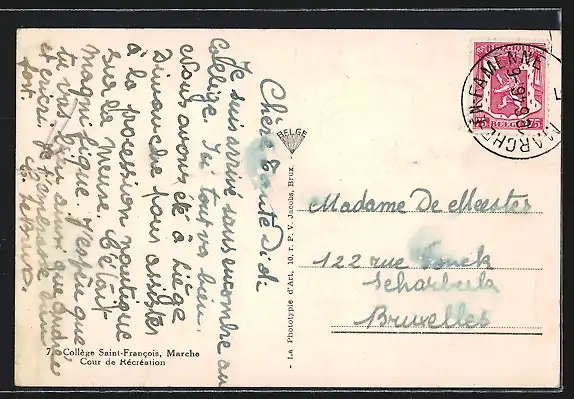 Chère Tante Didi
Je suis arrivé sans encombre au
collège. Ici tout va bien.
Nous avons été à Liège
Dimanche pour assister
à la procession nautique
sur la Meuse. C'était
magnifique. J'espère que
tu vas bien ainsi que André
et ci. Je t'embrasse bien
fort.
BELGE
- La Phototypie d'Art, 10, r. P. V. Jacobs, Brux. -
Madame De Meester
122 rue
Scharbeek
Bruxelles
BELGIQUE
75
MARCHE-EN-FAMENNE
7. Collège Saint-François, Marche
Cour de Récréation